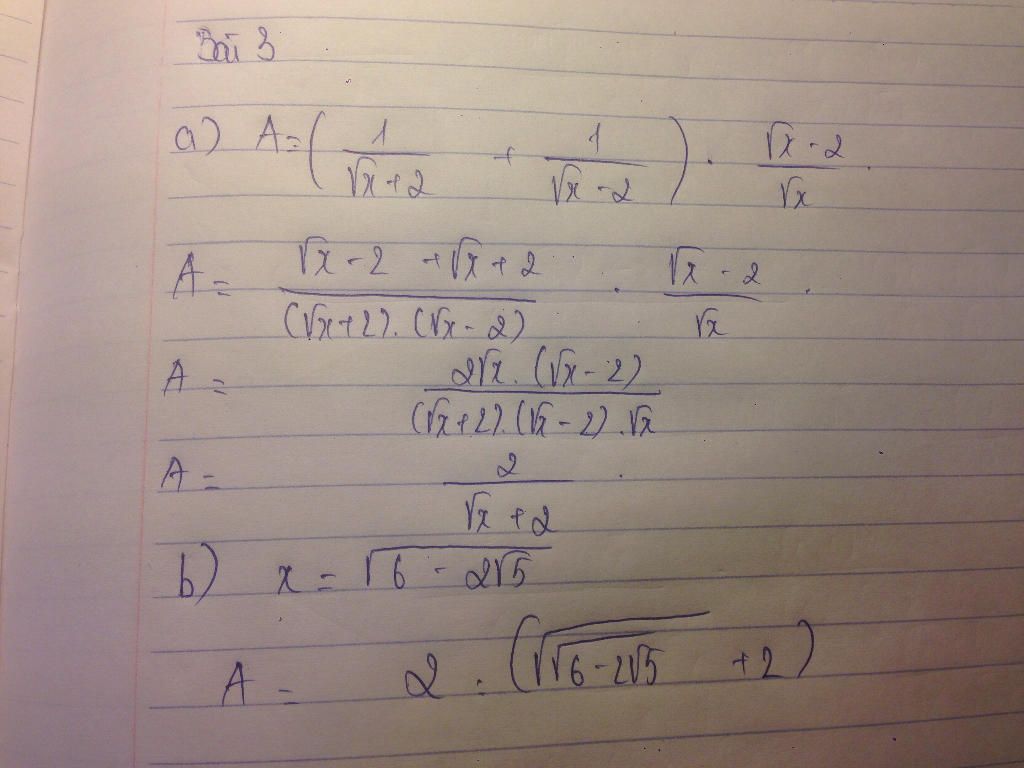 Bài 3
a) A = ( 1/(√x + 2) + 1/(√x - 2) ) . (√x - 2)/√x .
A = (√x - 2 + √x + 2)/((√x + 2) . (√x - 2)) . (√x - 2)/√x .
A = (2√x . (√x - 2))/((√x + 2) . (√x - 2) . √x)
A = 2/(√x + 2) .
b) x = √(6 - 2√5)
A = 2 : (√(√(6 - 2√5)) + 2)